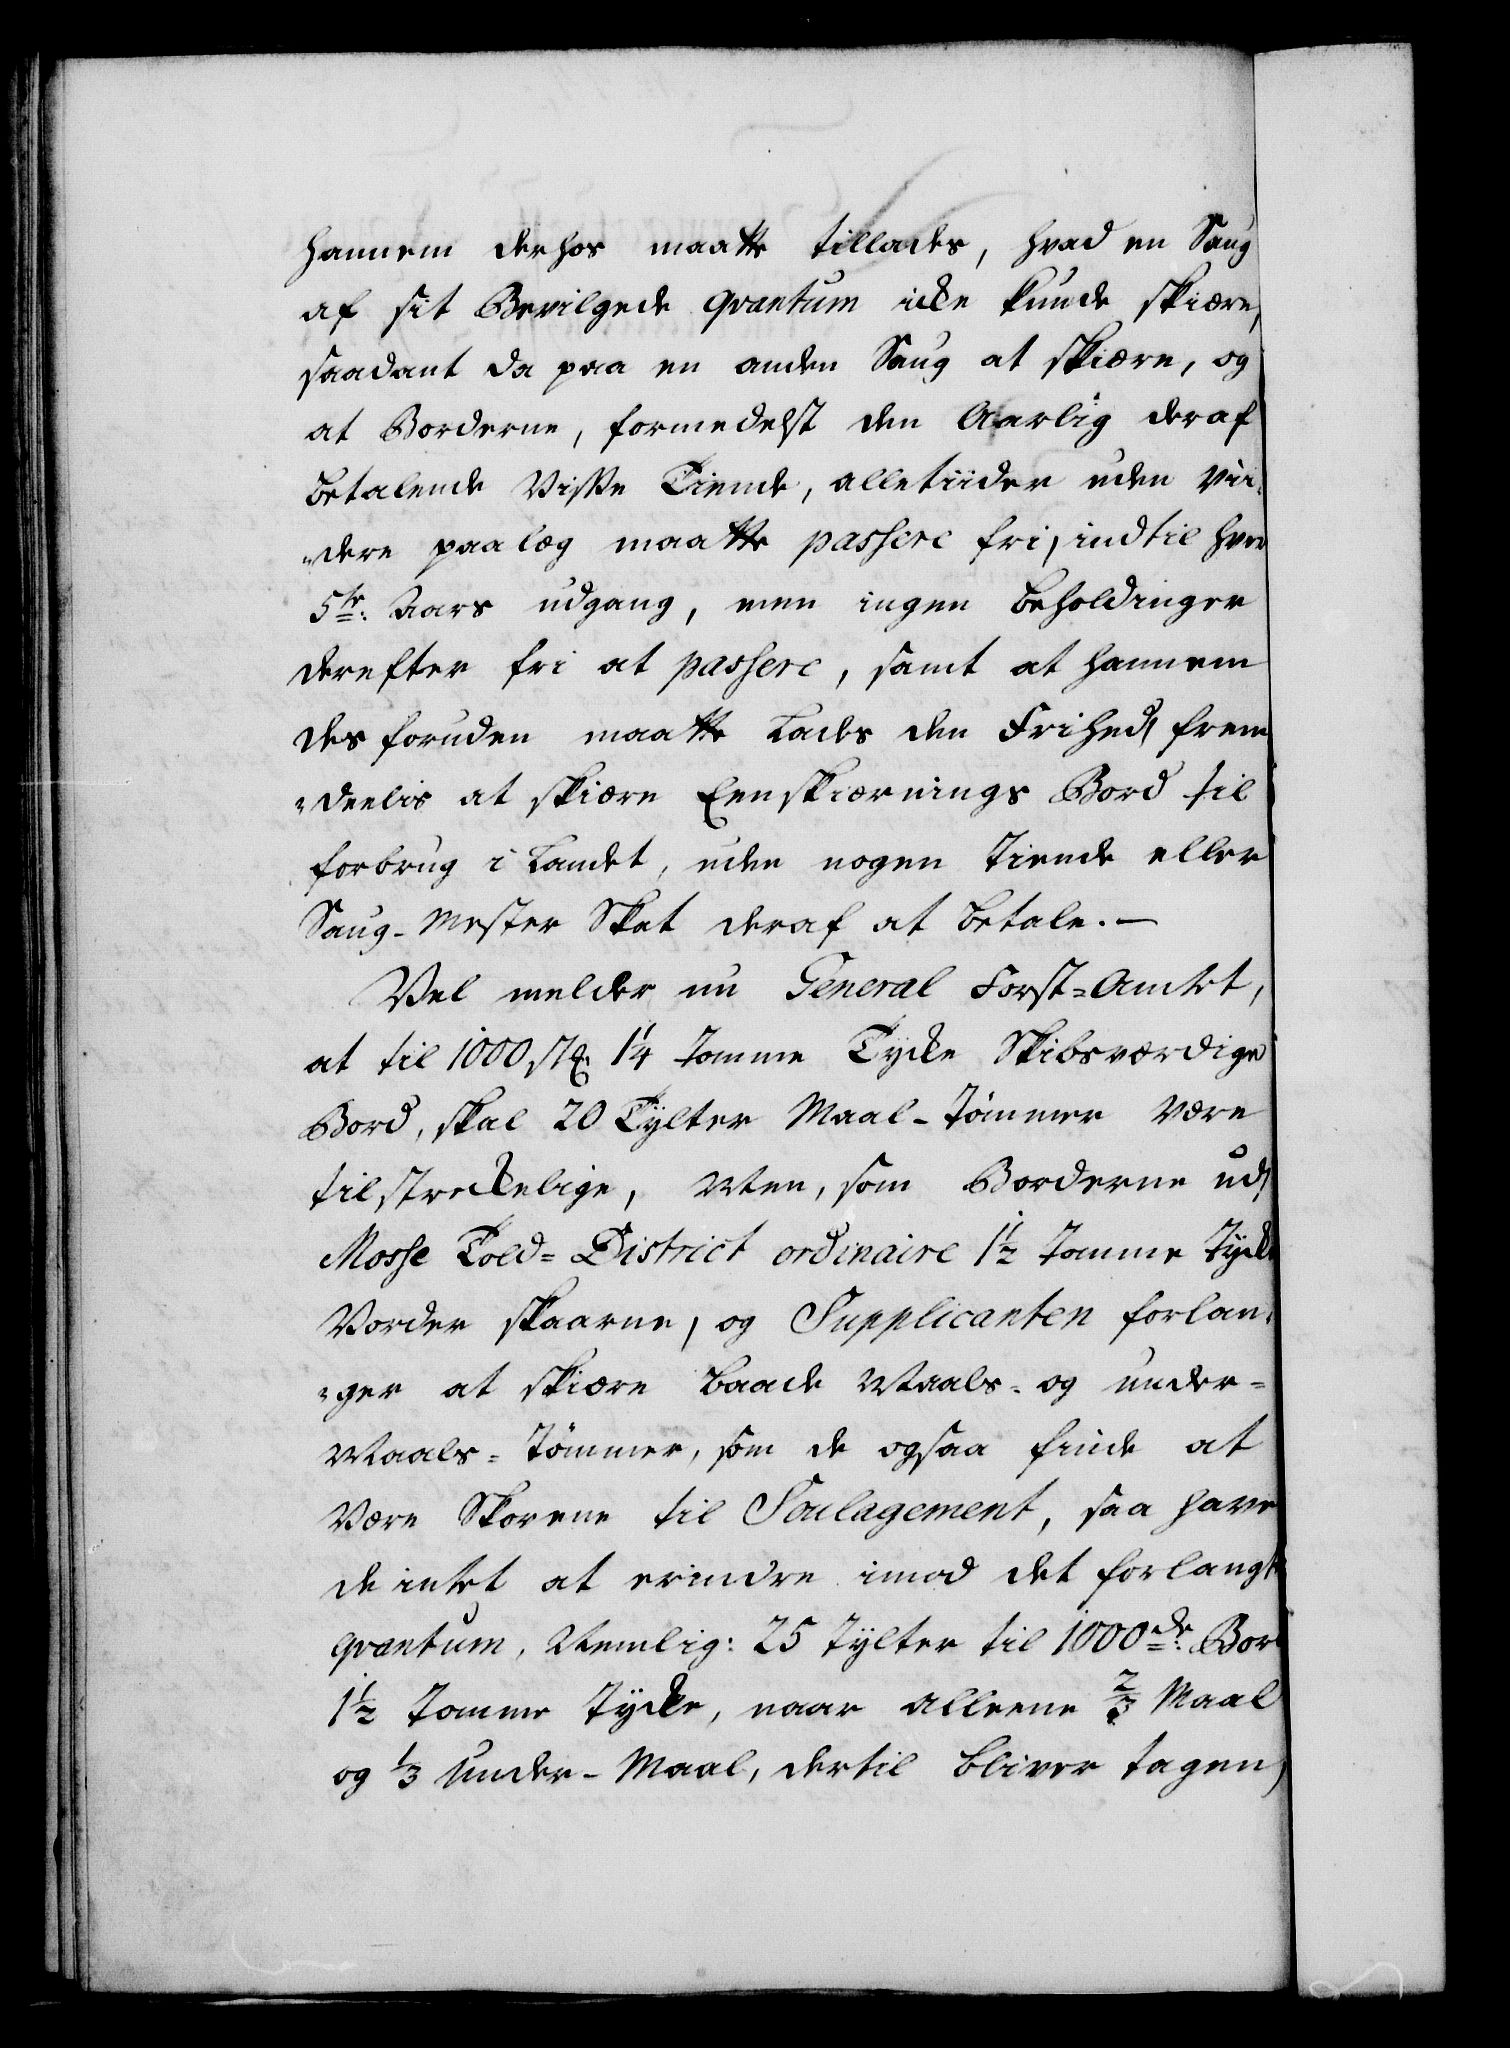 hannem derhos maatte tillades, hvad en Saug
af sit Bevilgede qvantum icke kunde skiære,
saadant da paa en anden Saug at skiære, og
at Borderne, formedelst den Aarlig deraf
betalende Visse Tiende, alletiider uden vii,
„dere paalæg maatte passere fri, indtil hver
5te: Aars udgang, men ingen beholdinger
derefter fri at passere, samt at hannem
desforuden maatte lades den Frihed, frem
„deelis at skiære Eenskiærnings Bord til
forbrug i Landet, uden nogen Tiende eller
Saug-Mester Skat deraf at betale. —
Vel melder nu General Forst=Amtet,
at til 1000 stk 1¼ Tomme Tycke Skibsværdige
Bord, skal 20 Tylter Maal-Tömmer være
tilstreckelige, Men, som Borderne udj
Mosse Told=District ordinaire 1½ Tomme Tycke
Vorder skaarne, og Supplicanten forlan„
„ger at skiære baade Maals- og under=
Maals=Tömmer, som de ogsaa finde at
være Skovene til Soulagement, saa have
de intet at erindre imod det forlangte
qvantum, Nemlig: 25 Tylter til 1000de: Bord
1½ Tomme Tycke, naar alleene ⅔ Maal
og ⅓ Under-Maal, dertil bliver tagen,